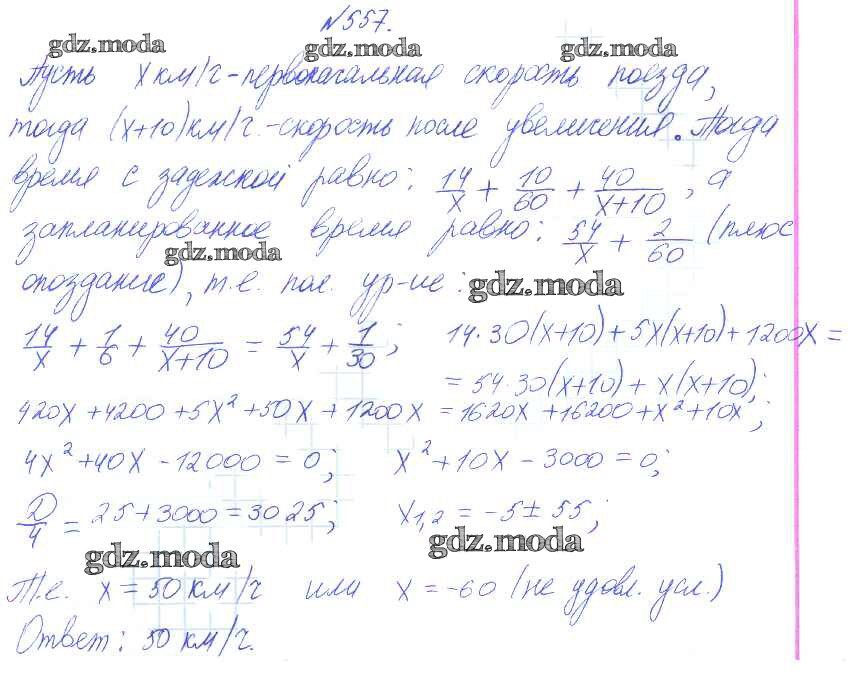 №557.
gdz.moda gdz.moda gdz.moda
Пусть x км/г - первоначальная скорость поезда,
тогда (x+10) км/г. - скорость после увеличения. Тогда
время с задежкой равно: 14/x + 10/60 + 40/(x+10), а
запланированное время равно: 54/x + 2/60 (плюс
gdz.moda
опоздание), т.е. пол. ур-ие:
gdz.moda
14/x + 1/6 + 40/(x+10) = 54/x + 1/30; 14·30(x+10) + 5x(x+10) + 1200x =
= 54·30(x+10) + x(x+10);
420x + 4200 + 5x² + 50x + 1200x = 1620x + 16200 + x² + 10x;
4x² + 40x - 12000 = 0; x² + 10x - 3000 = 0;
D/4 = 25 + 3000 = 3025; x₁,₂ = -5 ± 55;
gdz.moda gdz.moda
Т.е. x = 50 км/г или x = -60 (не удовл. усл.)
Ответ: 50 км/г.